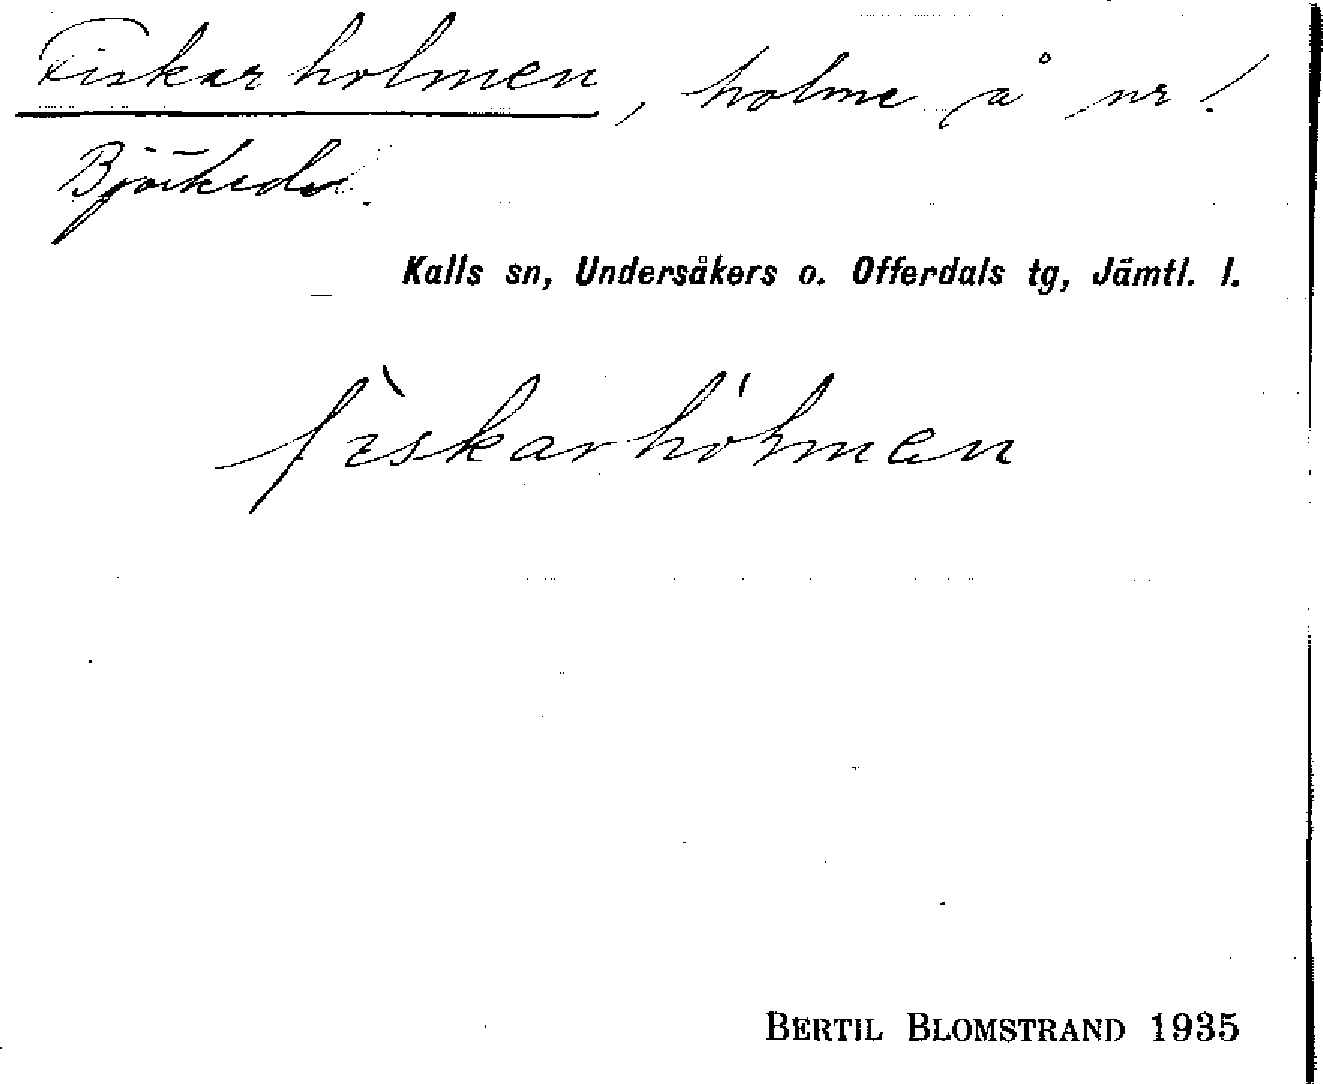 Fiskarholmen, holme å nr 1
Björkede.
Kalls sn, Undersåkers o. Offerdals tg, Jämtl. l.
fìskarhólmen
BERTIL BLOMSTRAND 1935